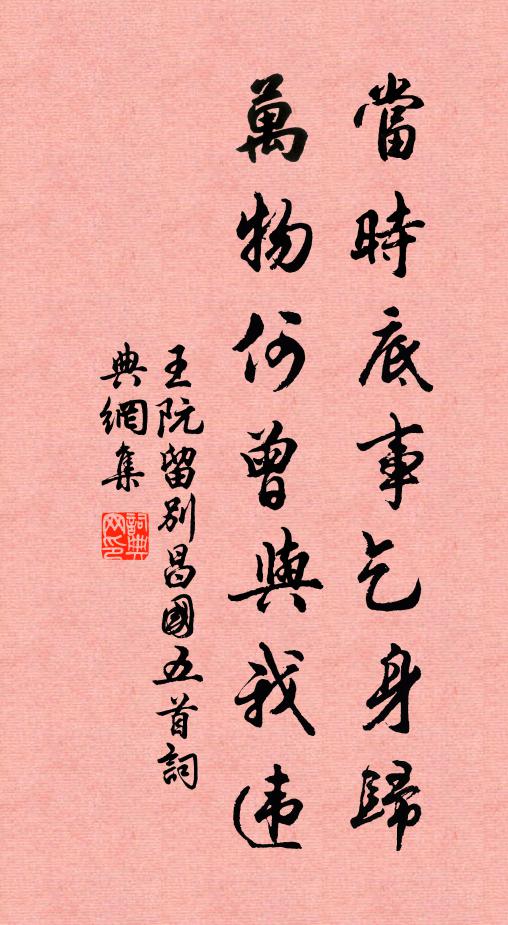 當時底事乞身歸
萬物何曾與我违
王阮留別昌國五首詞
典網集
詞典网印